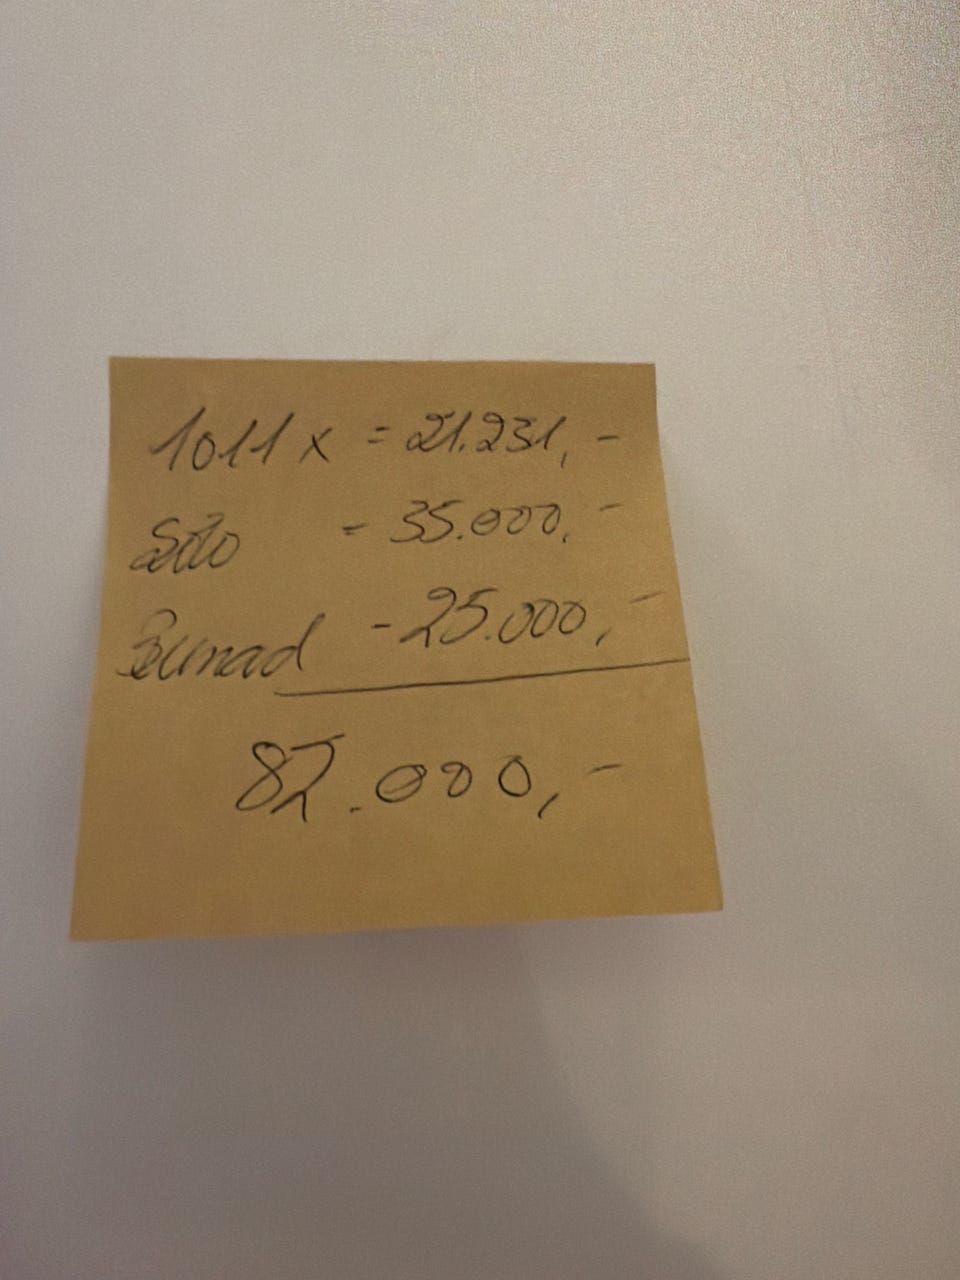 1011 x = 21.231,-
Sölv = 35.000,-
Bunad - 25.000,-
82.000,-